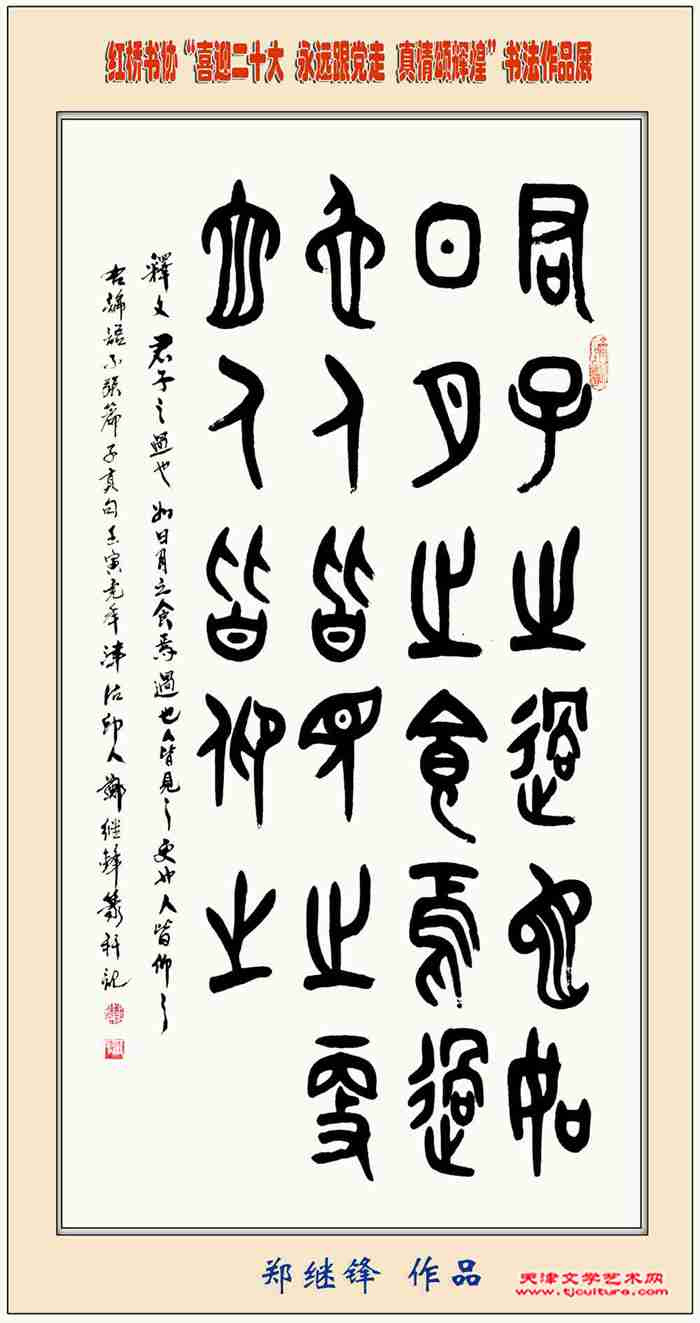 红桥书协“喜迎二十大 永远跟党走 真情颂辉煌”书法作品展
君子之過也如
日月之食焉過
也人皆見之更
也人皆仰之
釋文 君子之過也如日月之食焉過也人皆見之更也人皆仰之
右論語子張篇子貢句壬寅虎年津沽印人鄭継鋒篆并記
郑继锋 作品
天津文学艺术网
www.tjculture.com